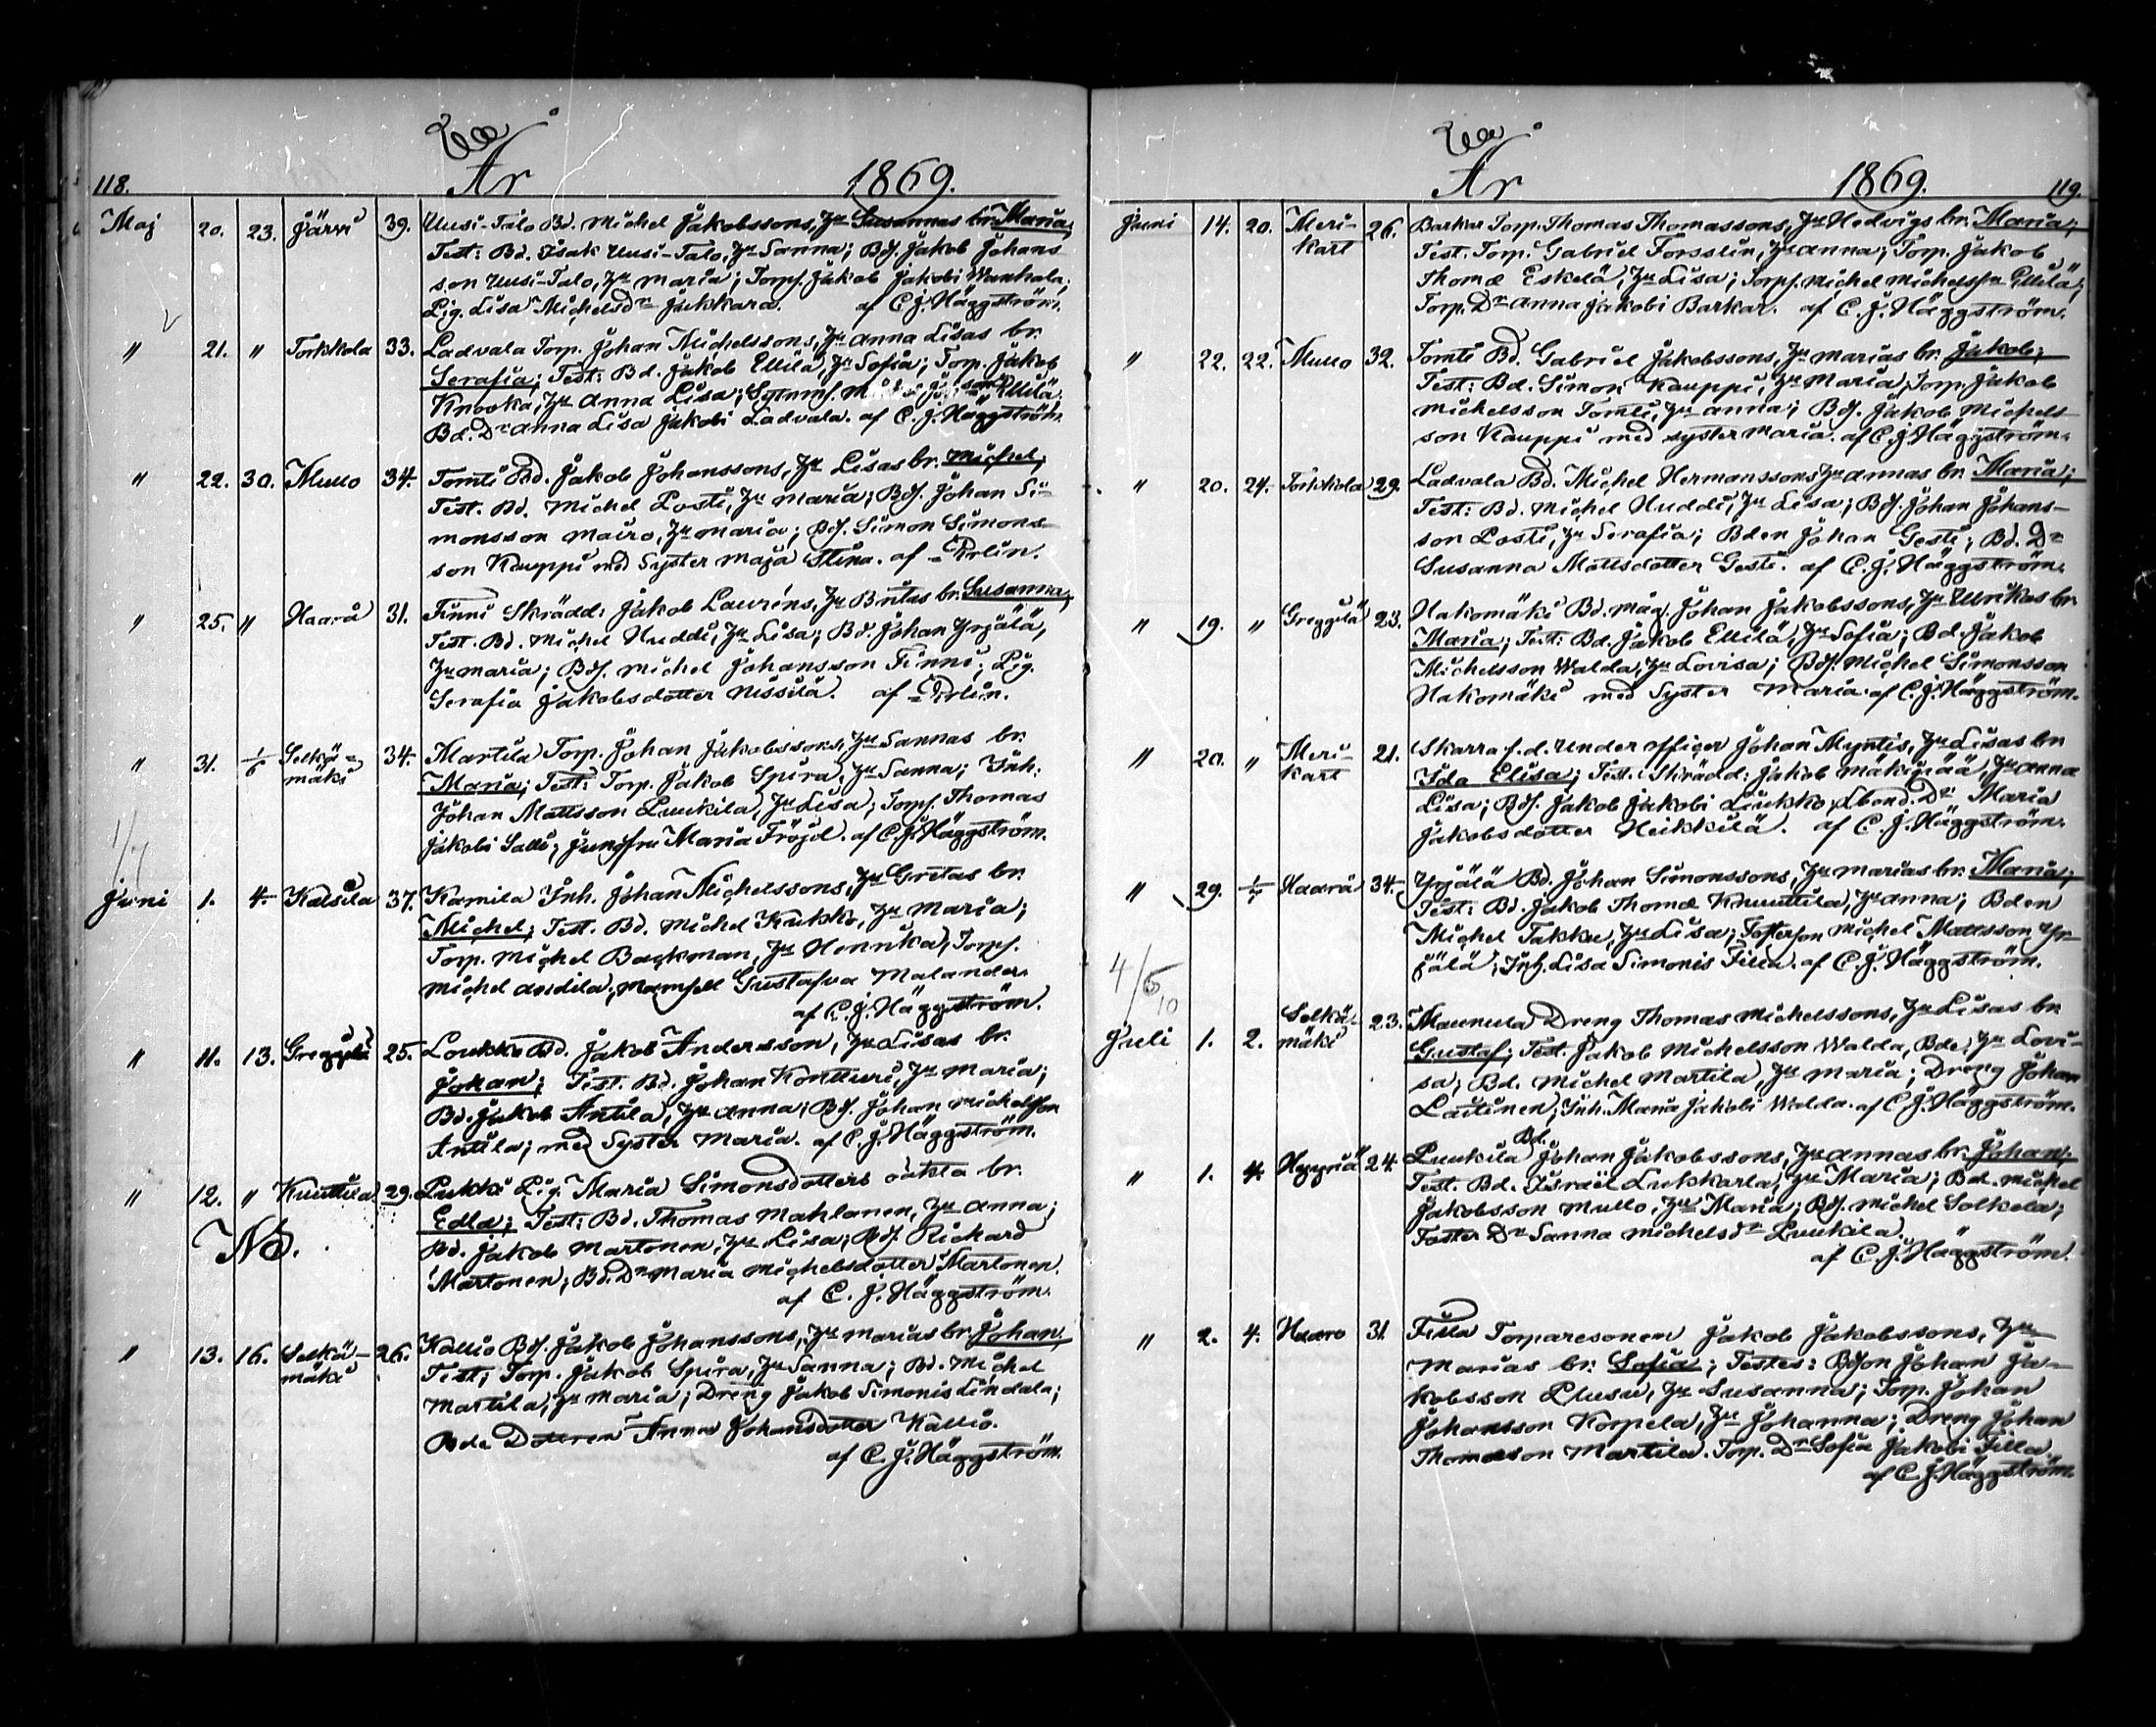 118.
År 1869.
Maj 20. 23. Järvi 39. Uusi-Talo Bd. Michel Jakobssons, Hu Susannas br. Maria;
Test: Bd. Isak Uusi-Talo, Hu Sanna; BdS. Jakob Johans
son Uusi-Talo, Hu Maria; Torps. Jakob Jakobi Wanhala;
Pig. Lisa Michelsdr Jukkara. af C. J. Häggström.
" 21. " Torkkola 33. Ladvala Torp. Johan Michelssons, Hu Anna Lisas br.
Serafia; Test: Bd. Jakob Ellilä, Hu Sofia; Torp. Jakob
Knooka, Hu Anna Lisa; Ellilä
Bd. Dr Anna Lisa Jakobi Ladvala. af C. J. Häggström.
" 22. 30. Mullo 34. Tomti Bd. Jakob Johanssons, Hu Lisas br. Michel;
Test. Bd. Michel Posti, Hu Maria; BdS. Johan Si-
monsson Mairo, Hu Maria; BdS. Simon Simons-
son Kauppi med Syster Maja Stina. af
" 25. " Haarä 31. Finni Skrädd: Jakob Lauréns, Hu Britas br. Susanna;
Test. Bd. Michel Huddi, Hu Lisa; Bd. Johan Yrjälä,
Hu Maria; BdS. Michel Johansson Finni; Pig.
Serafia Jakobsdotter Nissilä. af
" 31. 1/6 Selkä-
mäki 34. Martila Torp. Johan Jakobssons, Hu Sannas br.
Maria; Test: Torp. Jakob Spira, Hu Sanna; Inh.
Johan Mattsson Luukila, Hu Lisa; Torps. Thomas
Jakobi Salli; Jungfru Maria Fröjd. af C. J. Häggström.
1/7
Juni 1. 4. Kalsila 37. Kamila Inh. Johan Michelssons, Hu Gretas br.
Michel; Test. Bd. Michel Kukko, Hu Maria;
Torp. Michel Backman, Hu Henrika; Torps.
Michel Avidila; Mamsell Gustafva Malander.
af C. J. Häggström.
" 11. 13. Greggilä 25. Loukko Bd. Jakob Andersson, Hu Lisas br.
Johan; Test. Bd. Johan Kontturi, Hu Maria;
Bd. Jakob Antila, Hu Anna; BdS. Johan Michelsson
Antila; med Syster Maria. af C. J. Häggström.
" 12. " Knuttila 29. Pukki Pig. Maria Simonsdotters oäkta br.
Edla; Test: Bd. Thomas Mahlanen, Hu Anna;
NB. Bd. Jakob Martonen, Hu Lisa; BdS. Richard
Martonen; Bd. Dr Maria Michelsdotter Martonen.
af C. J. Häggström.
" 13. 16. Selkä-
mäki 26. Kallio BdS. Jakob Johanssons, Hu Marias br. Johan;
Test; Torp. Jakob Spira, Hu Sanna; Bd. Michel
Martila, Hu Maria; Dreng Jakob Simonis Lindala;
Bde Dotteren Anna Johansdotter Kallio.
af C. J. Häggström.
År 1869. 119.
Juni 14. 20. Meri-
kart 26. Barkar Torp. Thomas Thomassons, Hu Hedvigs br. Maria;
Test. Torp. Gabriel Forsslin, Hu Anna; Torp. Jakob
Thomæ Eskelä, Hu Lisa; Torps. Michel Michelsson Ellilä;
Torp. Dr Anna Jakobi Barkar. af C. J. Häggström.
" 22. 22. Mullo 32. Tomti Bd. Gabriel Jakobssons, Hu Marias br. Jakob;
Test: Bd. Simon Kauppi, Hu Maria; Torp. Jakob
Michelsson Tomti, Hu Anna; BdS. Jakob Michels-
son Kauppi med syster Maria. af C. J. Häggström.
" 20. 24. Torkkola 29. Ladvala Bd. Michel Hermanssons, Hu Annas br. Maria;
Test: Bd. Michel Huddi, Hu Lisa; BdS. Johan Johans-
son Posti, Hu Serafia; Bden Johan Gesti; Bd. Dr
Susanna Mattsdotter Gesti. af C. J. Häggström.
" 19. " Greggilä 23. Hakomäki Bd. måg. Johan Jakobssons, Hu Ulrikas br.
Maria; Test: Bd. Jakob Ellilä, Hu Sofia; Bd. Jakob
Michelsson Walda, Hu Lovisa; BdS. Michel Simonsson
Hakomäki med Syster Maria. af C. J. Häggström.
" 20. " Meri-
kart 21. Skarra f.d. Under officer Johan Myntis, Hu Lisas br.
Ida Elisa; Test: Skrädd: Jakob Mäkipää, Hu Anna
Lisa; BdS. Jakob Jakobi Liukko, Dr Maria
Jakobsdotter Heikkilä. af C. J. Häggström.
" 29. 1/7 Haarä 34. Yrjälä Bd. Johan Simonssons, Hu Marias br. Maria;
Test: Bd. Jakob Thomæ Knuuttila, Hu Anna; Bden
Michel Takku, Hu Lisa; Fosterson Michel Mattsson Yr-
jälä; Inh. Lisa Simonis Filla. af C. J. Häggström.
Juli 1. 2. Selkä-
mäki 23. Maunula Dreng Thomas Michelssons, Hu Lisas br.
Gustaf; Test. Jakob Michelsson Walda, Bde, Hu Lovi-
sa; Bd. Michel Martila, Hu Maria; Dreng Johan
Laitinen; Inh. Maria Jakobi Walda. af C. J. Häggström.
" 1. 4. Heggriä 24. Luukila Bd. Johan Jakobssons, Hu Annas br. Johan;
Test. Bd. Israël Lukkarla, Hu Maria; Bd. Michel
Jakobsson Mullo, Hu Maria; BdS. Michel Solkela;
Foster Dr Sanna Michelsdr Luukila.
af C. J. Häggström.
" 2. 4. Haaro 31. Filla Torparesonen Jakob Jakobssons, Hu
Marias br. Sofia; Testes: BdSon Johan Ja-
kobsson Plusu, Hu Susanna; Torp. Johan
Johansson Korpela, Hu Johanna; Dreng Johan
Thomasson Martila. Torp. Dr Sofia Jakobi Filla.
af C. J. Häggström.